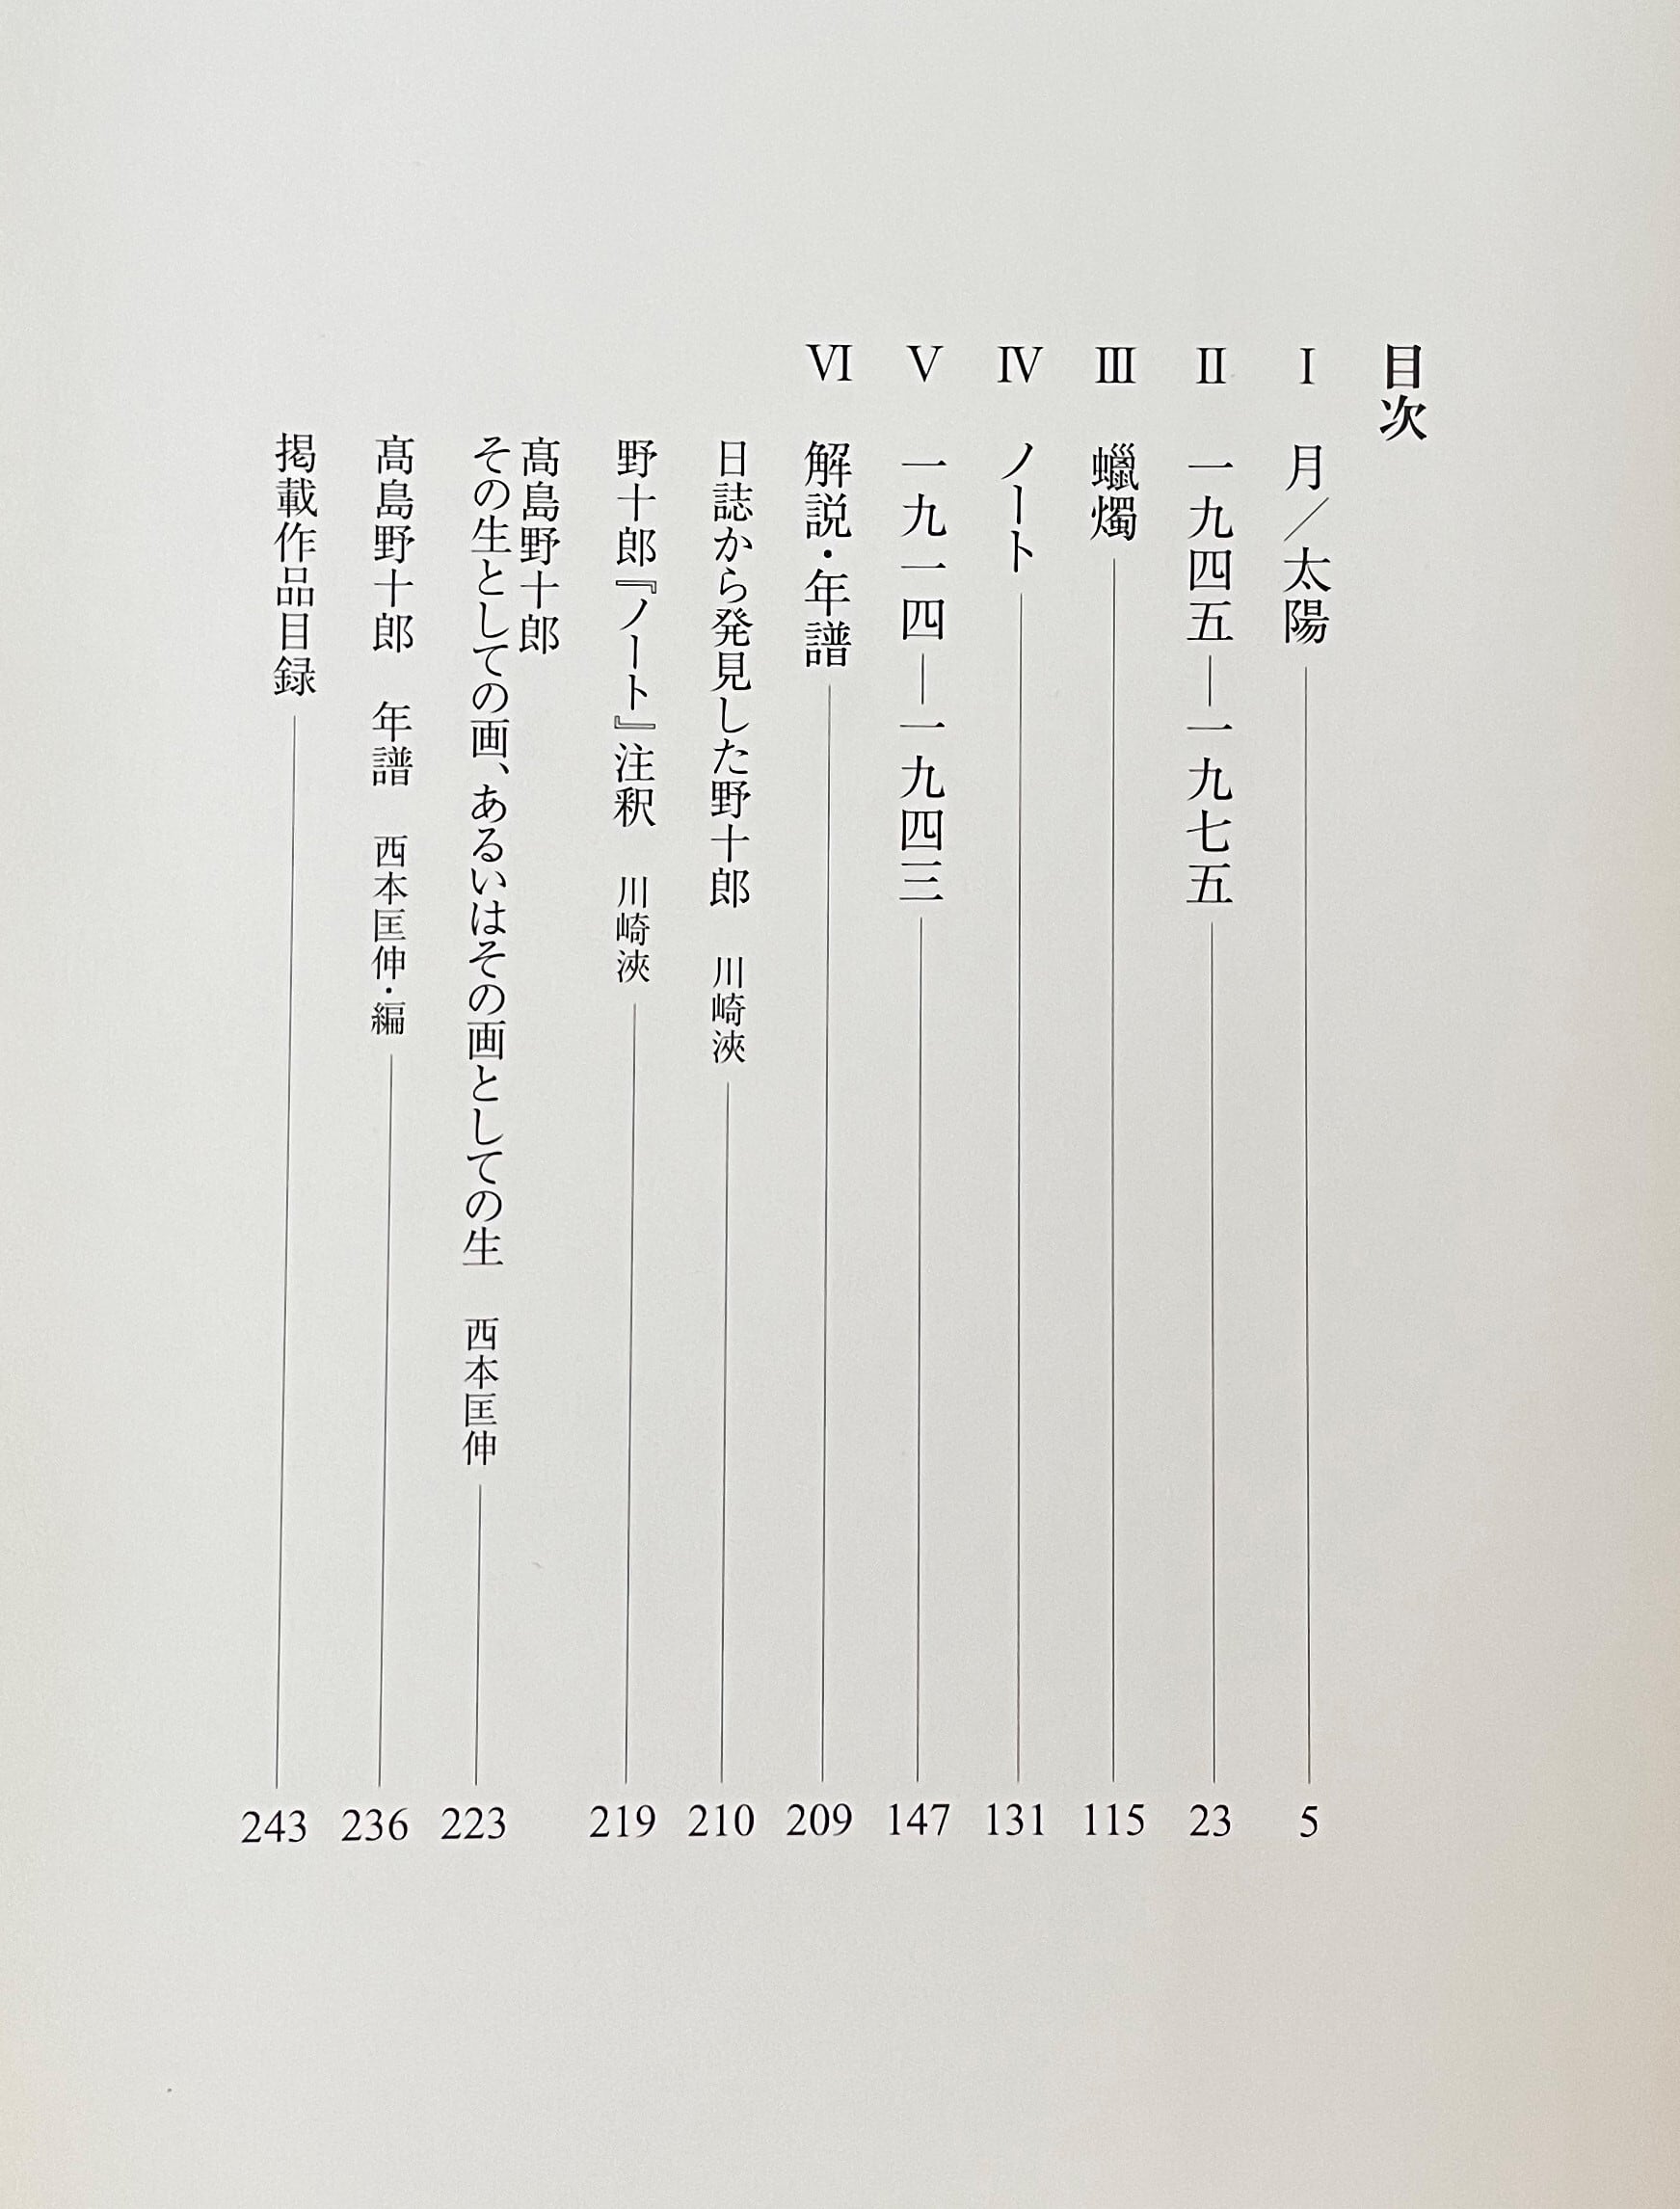 目次
Ⅰ 月／太陽 5
Ⅱ 一九四五―一九七五 23
Ⅲ 蠟燭 115
Ⅳ ノート 131
Ⅴ 一九一四―一九四三 147
Ⅵ 解説・年譜 209
日誌から発見した野十郎 川崎浹 210
野十郎『ノート』注釈 川崎浹 219
髙島野十郎
その生としての画、あるいはその画としての生 西本匡伸 223
髙島野十郎 年譜 西本匡伸・編 236
掲載作品目録 243